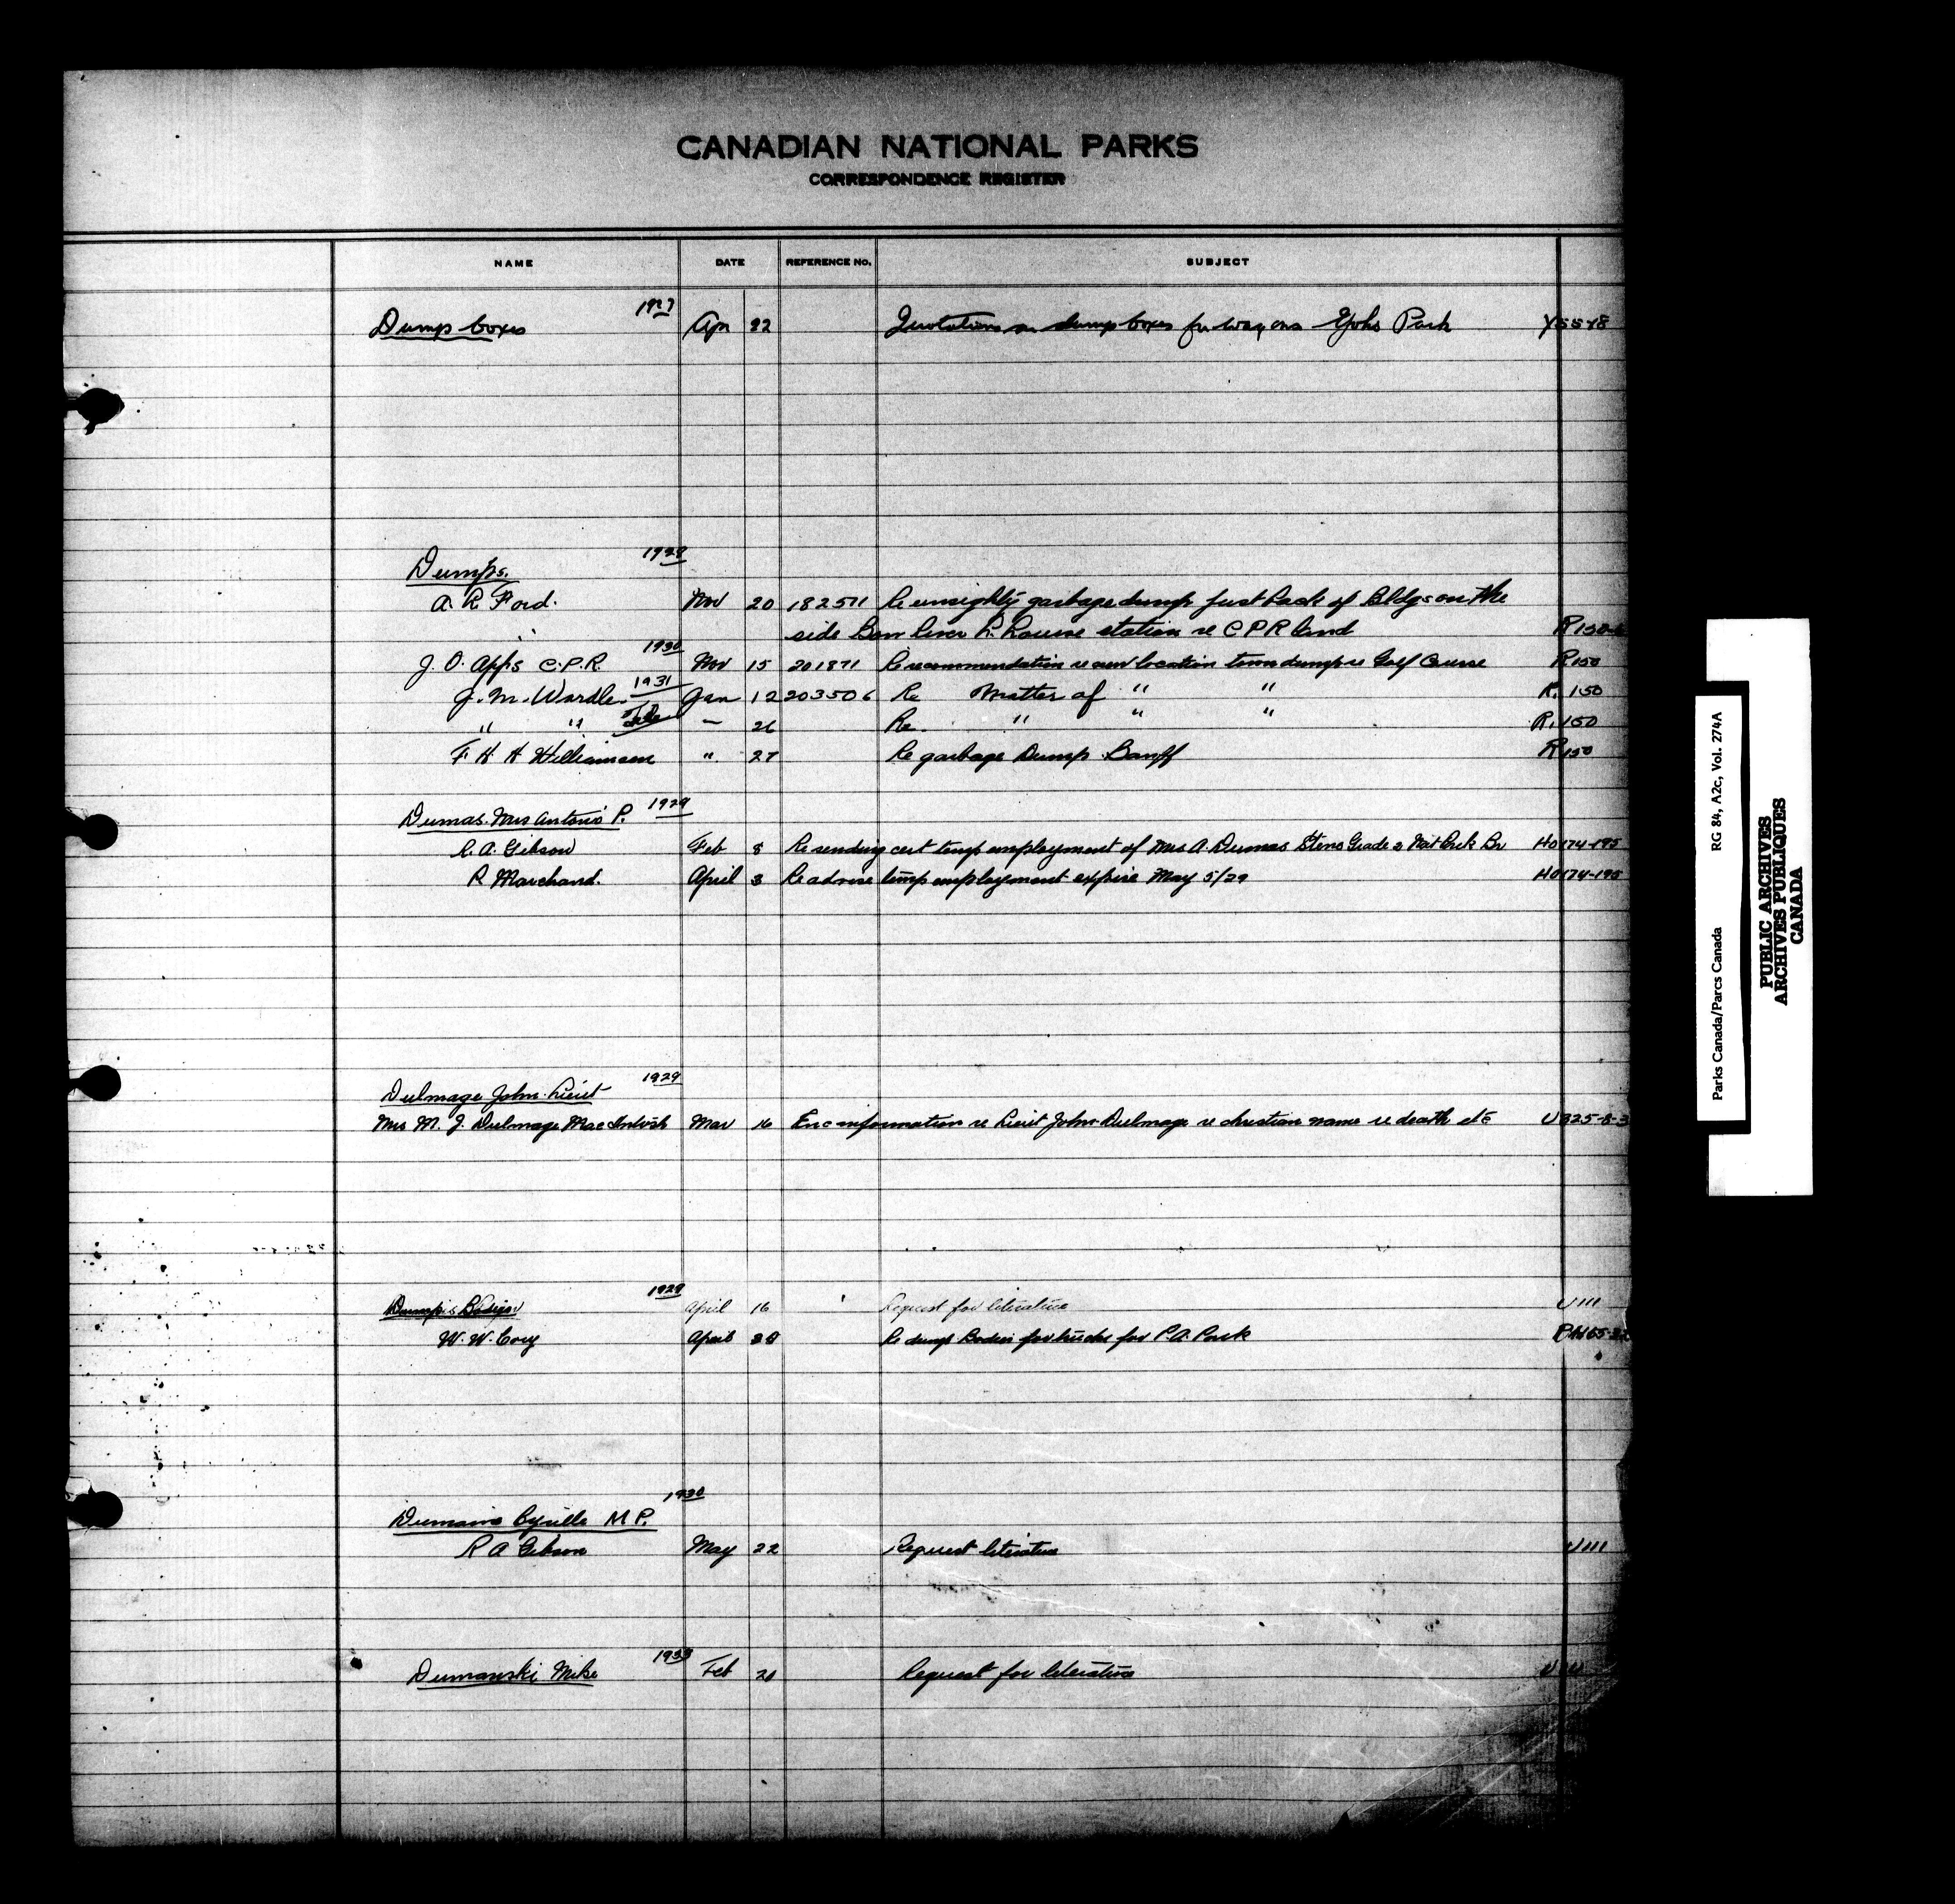 CANADIAN NATIONAL PARKS
CORRESPONDENCE REGISTER
NAME DATE REFERENCE No. SUBJECT
Dump boxes 1927 Apr 22 Quotations on dump boxes for wagons Yoho Park Y55-18
Dumps. 1928
A. R Ford. Nov 20 182571 Re unsightly garbage dump just back of Bldgs on the
side Bow River L. Louise station re C P R land R150
J. O. Apps C.P.R. 1930 Nov 15 201871 Re recommendation re new location town dump re Golf Course R150
J. M. Wardle 1931 Jan 12 203506 Re Matter of " " R. 150
" " Feb - 26 Re. " " " R. 150
F H H Williamson " 27 Re garbage Dump Banff R150
Dumas. Mrs Antonio P. 1929
R. A. Gibson Feb 8 Re sending cert temp employment of Mrs A. Dumas Steno Grade 2 Nat Park Br H0174-195
R Marchand. April 3 Re advise temp employment expire May 5/29 H0174-195
Dulmage John Lieut 1929
Mrs M. J. Dulmage MacIntosh Mar 16 Enc information re Lieut John Dulmage re christian name re death etc U325-8-3
1929 April 16 Request for literature U111
W. W. Cory April 29 Re dump Bodies for trucks for P.A. Park PA165-22
Dumaine Cyrille M P. 1930
R A Gibson May 22 Request literature U111
Dumanski Mike 1933 Feb 21 Request for literature
Parks Canada/Parcs Canada RG 84, A2c, Vol. 274A
PUBLIC ARCHIVES
ARCHIVES PUBLIQUES
CANADA